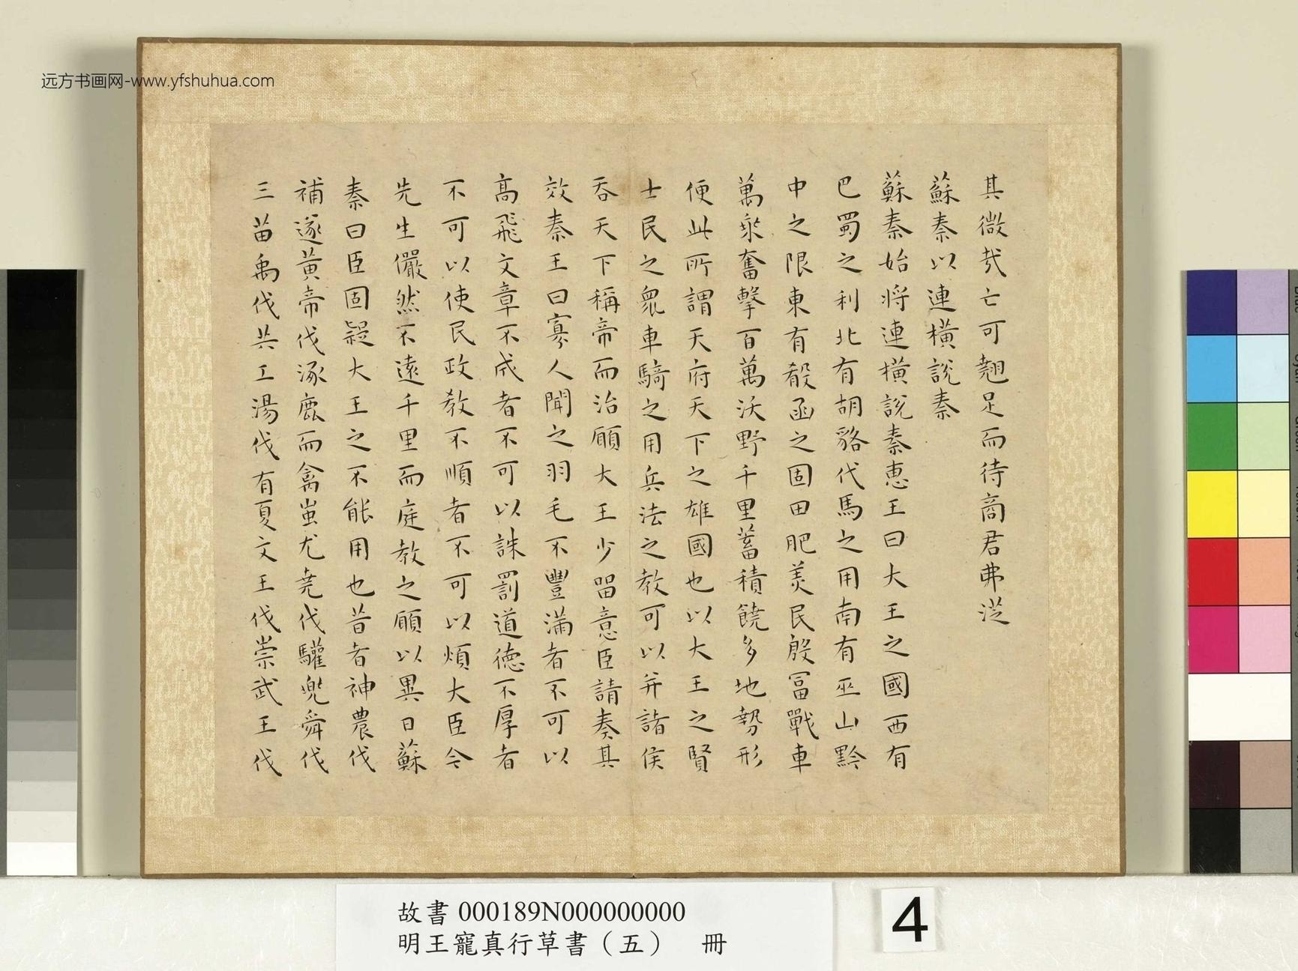 远方书画网-www.yfshuhua.com
其微哉亡可翹足而待商君弗從
蘇秦以連橫說秦
蘇秦始將連橫說秦惠王曰大王之國西有
巴蜀之利北有胡貉代馬之用南有巫山黔
中之限東有殽函之固田肥美民殷冨戰車
萬乘奮擊百萬沃野千里蓄積饒多地勢形
便此所謂天府天下之雄國也以大王之賢
士民之眾車騎之用兵法之教可以并諸侯
吞天下稱帝而治願大王少留意臣請奏其
效秦王曰寡人聞之羽毛不豐滿者不可以
高飛文章不成者不可以誅罰道德不厚者
不可以使民政教不順者不可以煩大臣今
先生儼然不遠千里而庭教之願以異日蘇
秦曰臣固疑大王之不能用也昔者神農伐
補遂黃帝伐涿鹿而禽蚩尤堯伐驩兜舜伐
三苗禹伐共工湯伐有夏文王伐崇武王伐
故書 000189N000000000
明王寵真行草書（五） 冊
4